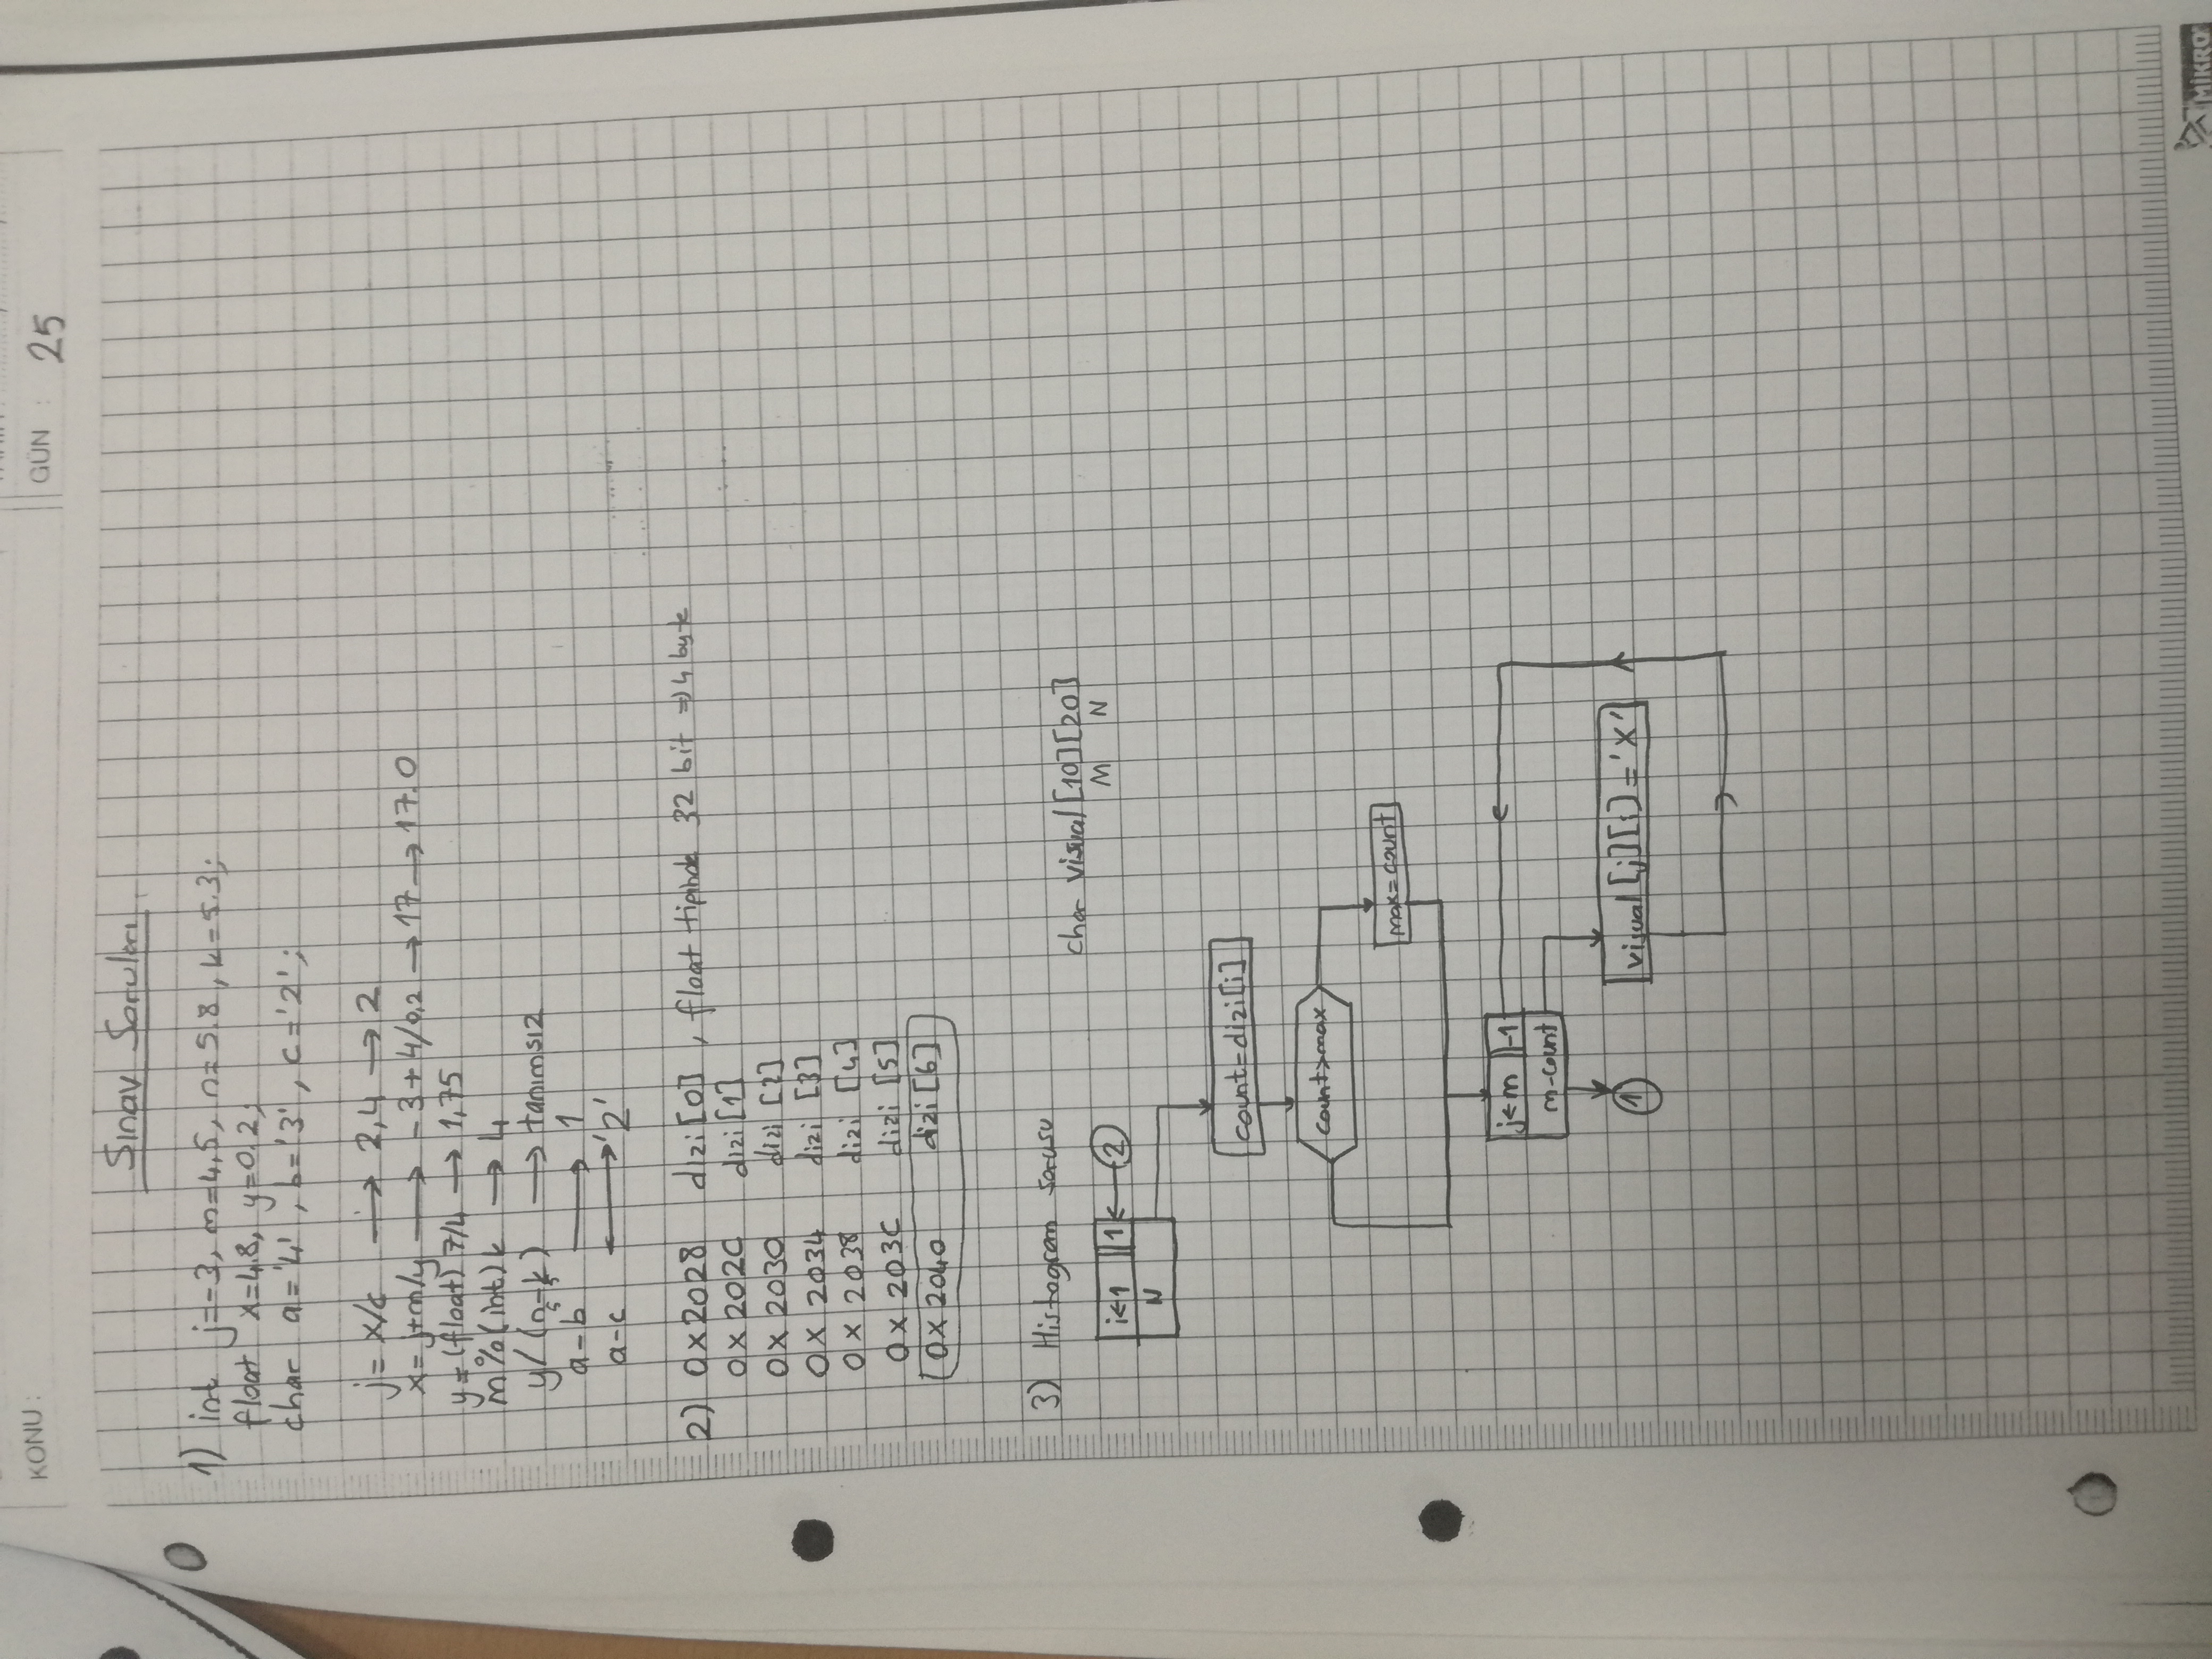 KONU :
GÜN : 25
Sınav Soruları
1) int j=-3, m=4,5, n=5.8, k=5.3;
float x=4.8, y=0.2;
char a='4', b='3', c='2';
j= x/c → 2,4 → 2
x= j+m/y → -3+4/0,2 → 17 → 17.0
y=(float) 7/4 → 1,75
m%(int)k → 4
y/(n-k) → tanımsız
5 5
a-b → 1
a-c ↔ '2'
2) 0x2028 dizi[0], float tipinde 32 bit ⇒ 4 byte
0x202C dizi[1]
0x2030 dizi [2]
0x2034 dizi [3]
0x2038 dizi [4]
0x203C dizi [5]
0x2040 dizi [6]
3) Histogram sorusu
char visual[10][20]
M N
i←1 1 ← 2
N
count=dizi[i]
count>max
max=count
j←m -1
m-count
1
visual[j][i]='X'
MİKRO